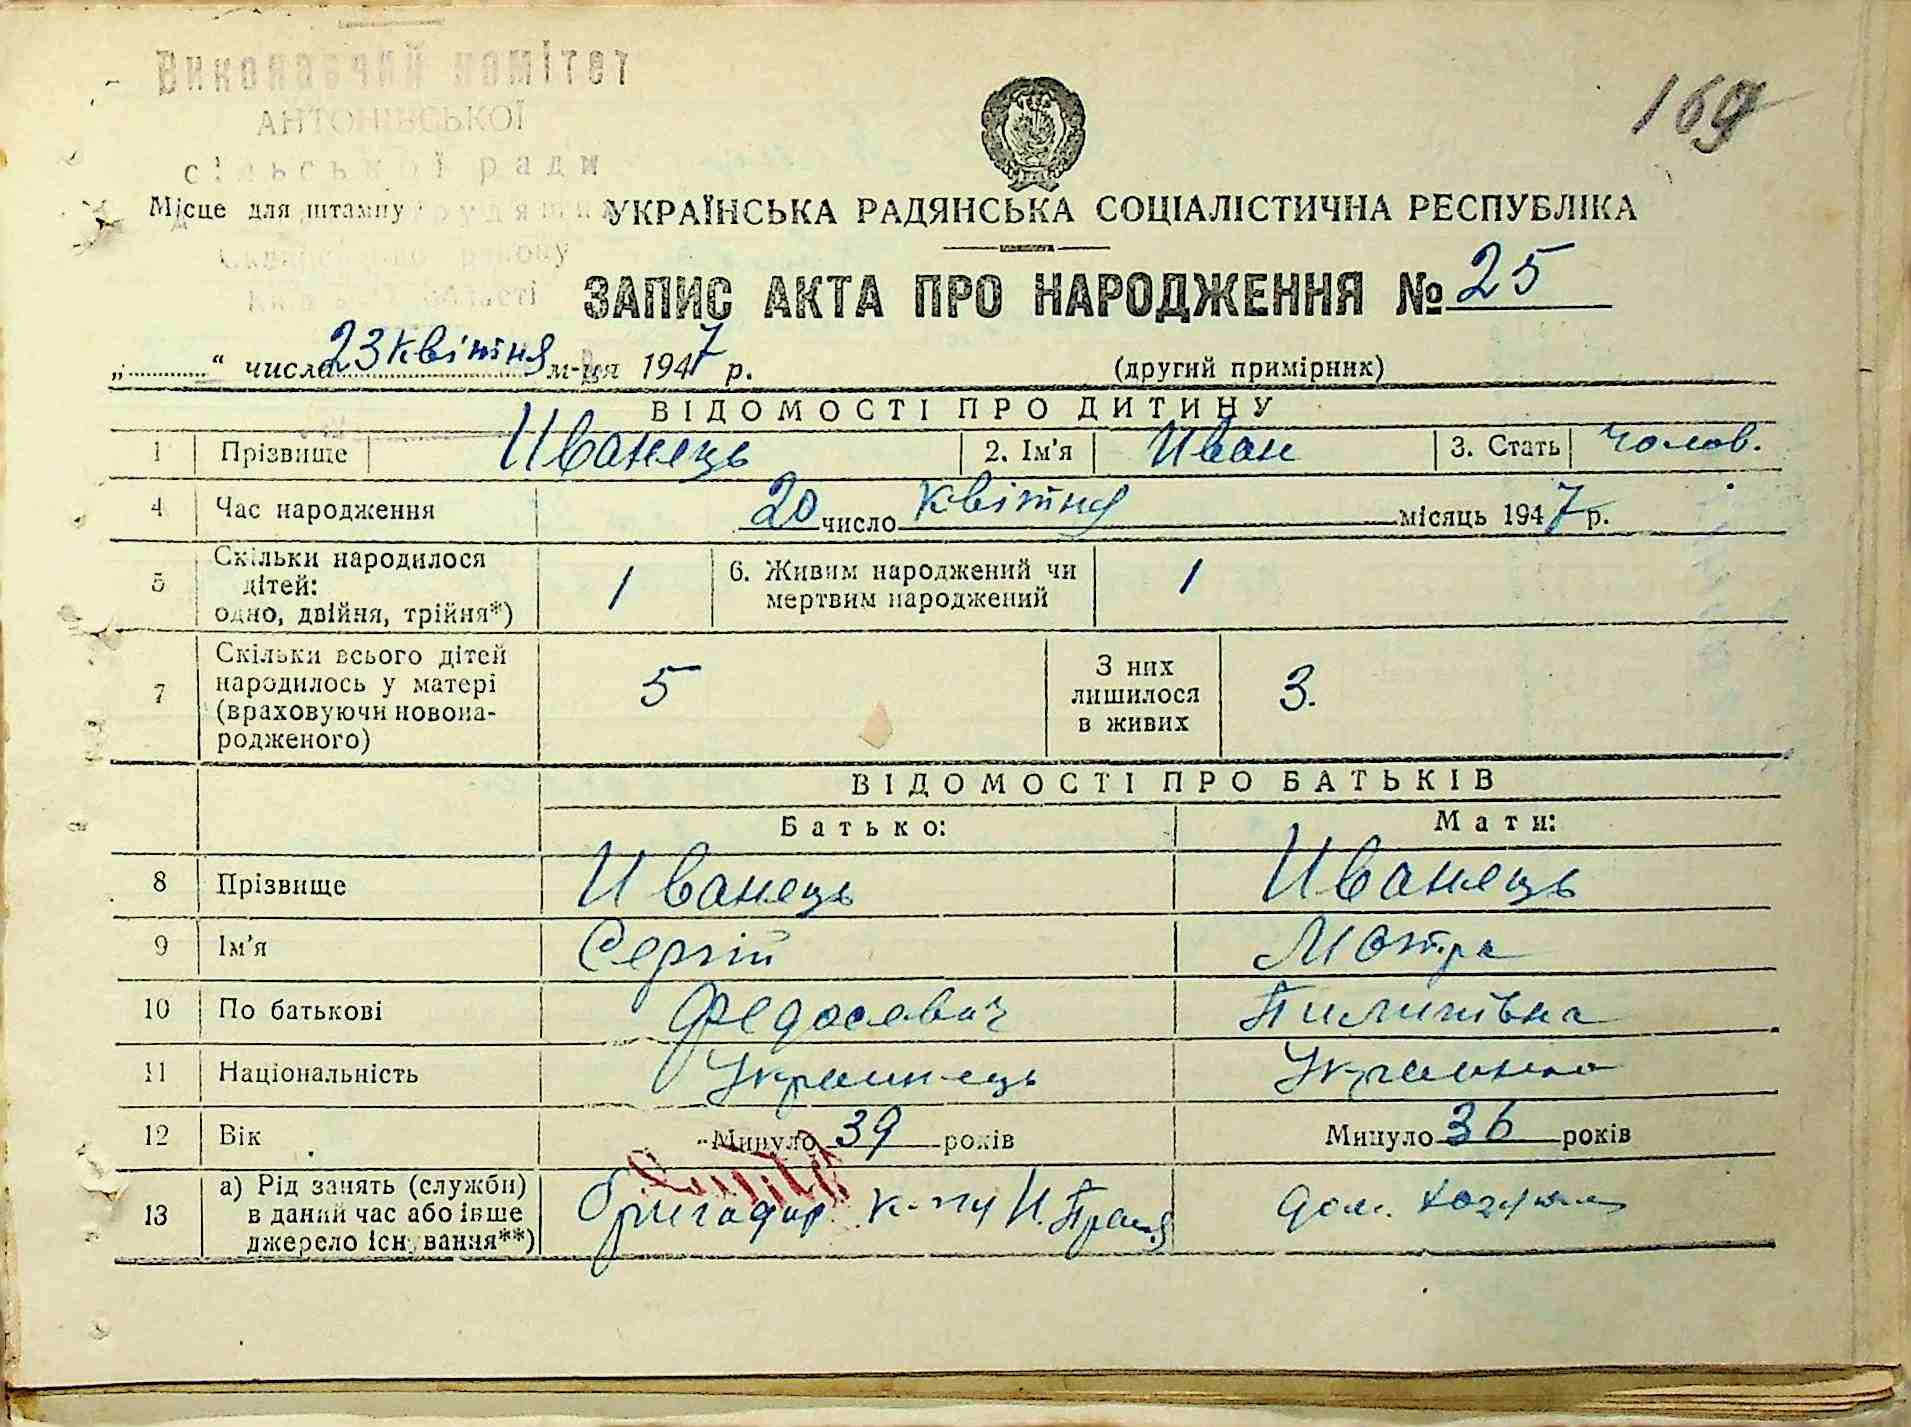 Виконавчий комітет
169
АНТОНІВСЬКОЇ
сільської ради
Місце для штампу
УКРАЇНСЬКА РАДЯНСЬКА СОЦІАЛІСТИЧНА РЕСПУБЛІКА
Сквирського району
Київської області
ЗАПИС АКТА ПРО НАРОДЖЕННЯ № 25
„ “ числа 23 квітня м-ця 1947 р.
(другий примірник)
ВІДОМОСТІ ПРО ДИТИНУ
1 Прізвище Иванець 2. Ім'я Иван 3. Стать чолов.
4 Час народження 20 число квітня місяць 1947 р.
5 Скільки народилося дітей: одно, двійня, трійня*) 1 6. Живим народжений чи мертвим народжений 1
7 Скільки всього дітей народилось у матері (враховуючи новонародженого) 5 З них лишилося в живих 3.
ВІДОМОСТІ ПРО БАТЬКІВ
Батько: Мати:
8 Прізвище Иванець Иванець
9 Ім'я Сергій Мотра
10 По батькові Федосевич Пилипівна
11 Національність Украинець Украинка
12 Вік Минуло 39 років Минуло 36 років
13 а) Рід занять (служби) в даний час або інше джерело існування**) бригадир к-пу Н. Праця дом.